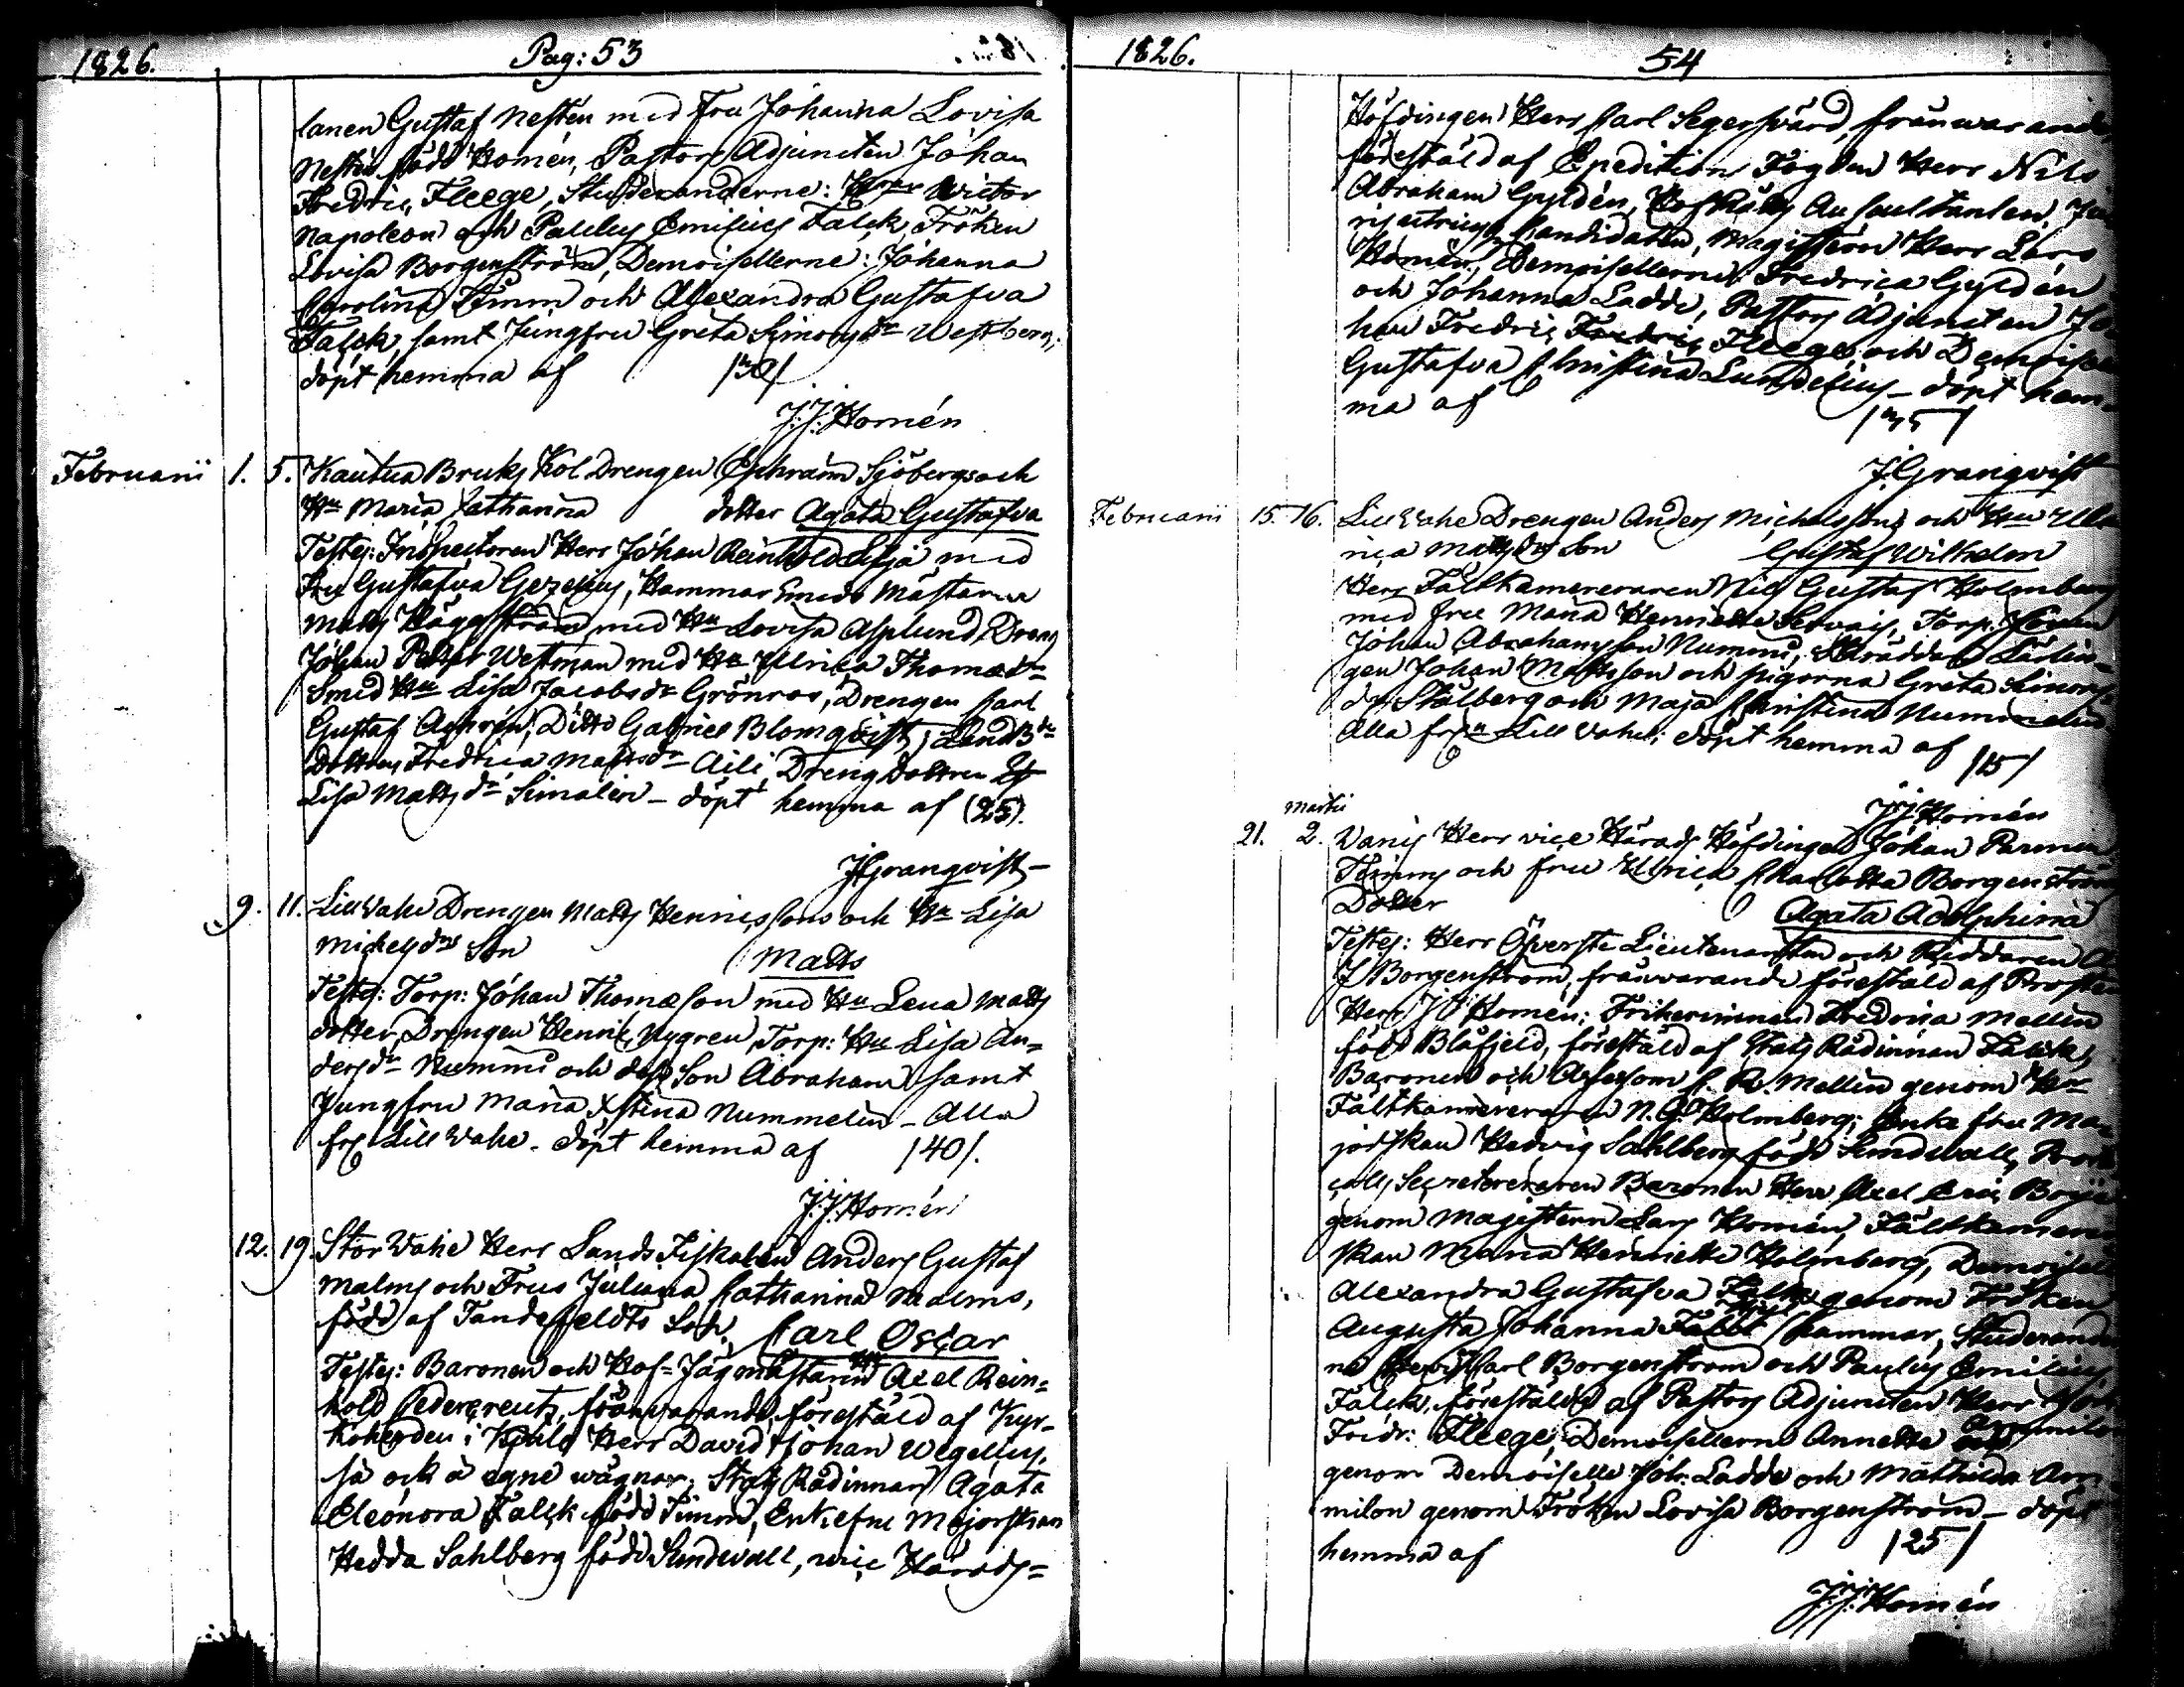 1826. Pag: 53
lanen Gustaf Nesten med Fru Johanna Lovisa
Nesten född Homén, Pastors Adjuncten Johan
Fredric Fleege, Studeranderne: Victor
Napoleon och Paulus Emilius Falck, Fröken
Lovisa Borgenström, Demoisellerne: Johanna
Carolina Timm och Alexandra Gustafva
Falck, samt Jungfru Greta Simonsdr Westberg;
döpt hemma af /30/
J.J. Homén
Februarii 1. 5. Kautua Bruks Kol Drengen Ephraim Sjöbergs och
Hu Maria Catharina dotter Agata Gustafva
Testes: Inspectoren Herr Johan Reinhold Lilja med
Fru Gustafva Gezelius, Hammar Smeds Mästaren
Matts Häggström med Hu Lovisa Asplund, Dreng
Johan Petter Westman med Hu Ulrica Thomædr
Smed Hu Lisa Jacobsdr Grönroos, Drengen Carl
Gustaf Aghrén, Ditto Gabriel Blomqvist,
Dottren Fredrica Mattsdr Aili, Dreng Dottren
Lisa Mattsdr Simalin - döpt hemma af (25).
J Granqvist
9. 11. Lill Wahe Drengen Matts Henricssons och Hu Lisa
Michelsdrs Son Matts
Testes: Torp: Johan Thomæson med Hu Lena Matts
dotter, Drengen Henric Nygren, Torp: Hu Lisa An=
dersdr Nummi och dess Son Abraham samt
Jungfru Maria Xstina Nummelin - Alla
frs Lill Wahe - döpt hemma af /40/.
J.J. Homén
12. 19. Stor Wahe Herr Lands Fiskalen Anders Gustaf
Malms och Frus Juliana Catharina Malms,
född af Tandefeldts Son, Carl Oscar
Testes: Baronen och Hof=Jägmästaren Hr Axel Rein=
hold Cedercreutz, frånvarande, förestäld af Kyr=
koherden i Kjulo Herr David Johan Wegelius,
så ock å egne wägnar; Stats Rådinnan Agata
Eleonora Falck född Timm, Enkefru Majorskan
Hedda Sahlberg född Sundwall, vice Härads=
1826. 54
Höfdingen Herr Carl Segersvärd, frånwarande,
förestäld af Expeditions Fogden Herr Nils
Abraham Gyldén, Hofrätts Auscultanten,
Candidaten, Magistern Herr Lars
Homén, Demoisellerne: Fredrica Gyldén
och Johanna Ladde, Pastors Adjuncten Jo
han Fredric Fredric Fleege, och Demoiselle
Gustafva Christina Lundelius - döpt hem=
ma af /35/
J. Granqvist
Februarii 15. 16. Lill Wahe Drengen Anders Michelssons och Hu Ul
rica Mattsdrs Son Gustaf Wilhelm
Herr Fältkamereraren Nils Gustaf Holmberg
med fru Maria Henrietta Servais, Torp:
Johan Abrahamsson Nummi, Skräddare Lärlin=
gen Johan Mattsson och pigorna Greta Simons
dr Stålberg och Maja Christina Nummelin
Alla frn Lill Wahe; döpt hemma af /15/
J.J. Homén
21. Martii 2. Vanis Herr vice Härads Höfdingen Johan Parmen
Timms och fru Ulrica Charlotta Borgenström
Dotter Agata Adolphina
Testes: Herr Öfverste Lieutenanten och Riddaren
J Borgenström, frånvarande förestäld af Prosten
Herr J J Homén; Friherinnan Fredrica Mellin
född Blåfjeld, förestäld af Stats Rådinnan Falck,
Baronen och Assessorn C. R. Mellin genom Hr
Fältkamereraren N. G. Holmberg; Enke fru Ma
jorskan Hedvig Sahlberg född Sundwall, Proto
colls Secreteraren Baronen Herr Axel Eric Boije
genom Magistern Lars Homén, Fältkamerer
skan Maria Henrietta Holmberg, Demoiselle
Alexandra Gustafva Falck genom Fröken
Augusta Johanna Cammar, Studerande
ne Carl Borgenström och Paulus Emilius
Falck, förestälde af Pastors Adjuncten Herr Joh
Fridr: Fleege, Demoisellerne Annette Armilon
genom Demoiselle Joh: Ladde och Mathilda Ar
milon genom Fröken Lovisa Borgenström - döpt
hemma af /25/
J.J. Homén